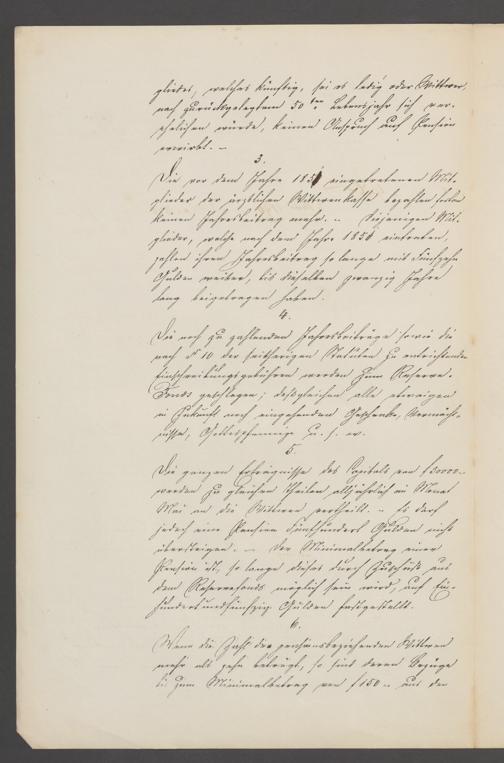 gliedes, welches künftig, sei es ledig oder Wittwer,
nach zurückgelegtem 50 ten Lebensjahr sich ver-
ehelichen würde, keinen Anspruch auf Pension
erwirbt. –
3.
Die vor dem Jahre 185 eingetretenen Mit-
glieder der ärztlichen Wittwenkasse bezahlen
keinen Jahresbeitrag mehr. – Diejenigen Mit-
glieder, welche nach dem Jahre 185 eintraten,
zahlen ihren Jahresbeitrag so lange mit Fünfzehn
Gulden weiter, bis dieselben zwanzig Jahre
lang beigetragen haben.
4.
Die noch zu zahlenden Jahresbeiträge sowie die
nach § 10 der seitherigen Statuten zu entrichtenden
Einschreibungsgebühren werden zum Reserve-
Fonds geschlagen; desgleichen alle etwaigen
in Zukunft noch eingehenden Geschenke, Vermächt-
nisse, Gottespfennige u. s. w.
5.
Die ganzen Erträgnisse des Capitals von
werden zu gleichen Theilen alljährlich im Monat
Mai an die Wittwen vertheilt. – Es darf
jedoch eine Pension Fünfhundert Gulden nicht
übersteigen. – Der Minimalbetrag einer
Pension ist, so lange dieses durch Zuschuß aus
dem Reservefonds möglich sein wird, auf Ein-
hundertundfünfzig Gulden festgestellt.
6.
Wenn die Zahl der pensionsbeziehenden Wittwen
mehr als zehn beträgt, so sind deren Bezüge
bis zum Minimalbetrag von f 150 – aus dem